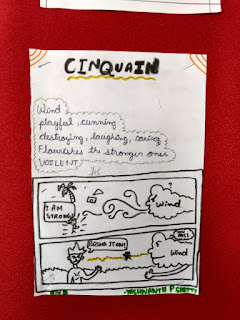 CINQUAIN
Wind
playful, cunning
destroying, laughing, caring
Flourishes the stronger ones
VOILENT
I AM
STRONG
Wind
Wind
YASHWANTH P CHETTY